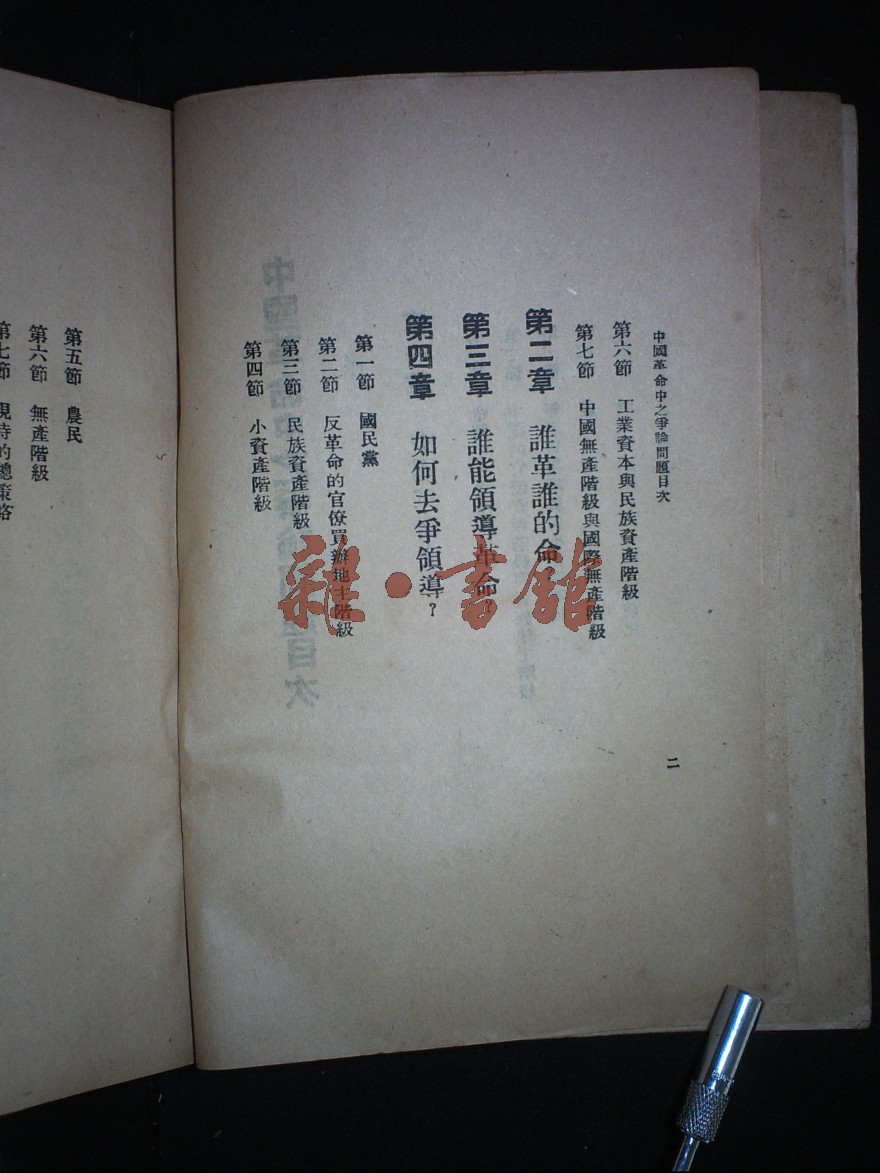 中國革命中之爭論問題目次
第六節 工業資本與民族資產階級
第七節 中國無產階級與國際無產階級
第二章 誰革誰的命
第三章 誰能領導革命?
第四章 如何去爭領導?
第一節 國民黨
第二節 反革命的官僚買辦地主階級
第三節 民族資產階級
第四節 小資產階級
二
第五節 農民
第六節 無產階級
第七節 現時的總策略
雜·書館